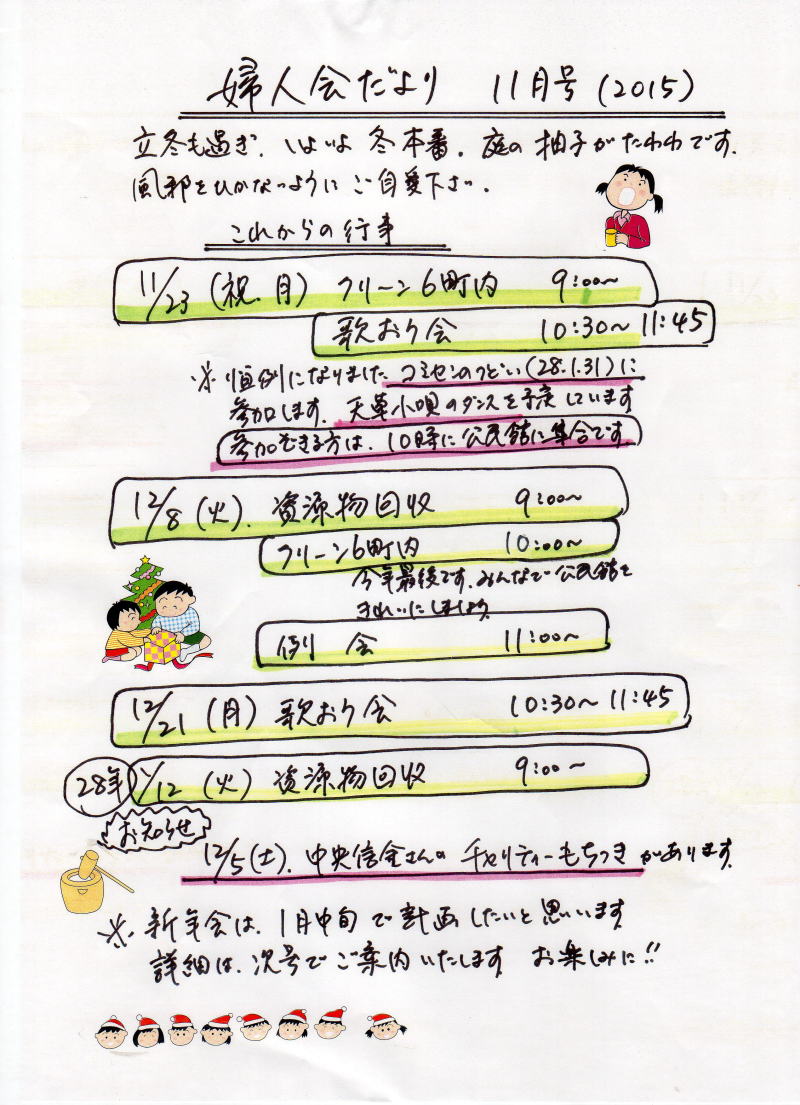 婦人会だより 11月号(2015)
立冬も過ぎ、いよいよ冬本番。庭の柚子がたわわです。
風邪をひかないようにご自愛下さい。
これからの行事
11/23(祝.月) クリーン6町内 9:00〜
歌おう会 10:30〜11:45
※恒例になりましたコミセンのつどい(28.1.31)に
参加します。天草小唄のダンスを予定しています
参加できる方は、10時に公民館に集合です
12/8(火). 資源物回収 9:00〜
クリーン6町内 10:00〜
今年最後です。みんなで公民館を
きれいにしましょう
例会 11:00〜
12/21(月) 歌おう会 10:30〜11:45
28年 1/12(火) 資源物回収 9:00〜
お知らせ
12/5(土). 中央信金さんのチャリティーもちつきがあります。
※新年会は、1月中旬で計画したいと思います
詳細は、次号でご案内いたします お楽しみに!!